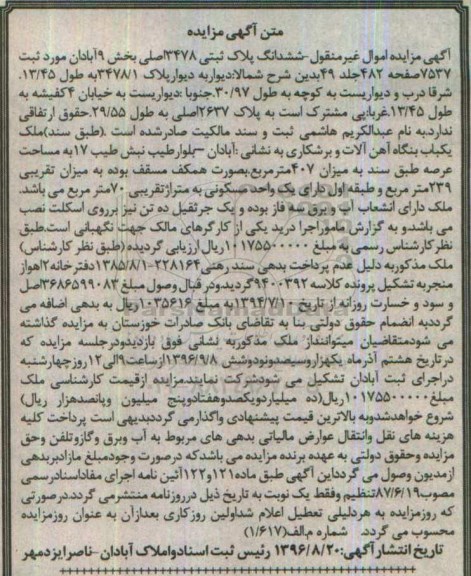 متن آگهی مزایده
آگهی مزایده اموال غیرمنقول-ششدانگ پلاک ثبتی ۳۴۷۸اصلی بخش ۹آبادان مورد ثبت
۷۵۳۷صفحه ۴۸۲جلد ۴۹بدین شرح شمالا:دیواربه دیوارپلاک ۳۴۷۸/۱به طول ۱۳/۴۵.
شرقا درب و دیواریست به کوچه به طول ۳۰/۹۷.جنوبا :دیواریست به خیابان ۴کفیشه به
طول ۱۳/۴۵.غربا:پی مشترک است به پلاک ۲۶۳۷اصلی به طول ۲۹/۵۵.حقوق ارتفاقی
ندارد.به نام عبدالکریم هاشمی ثبت و سند مالکیت صادرشده است .(طبق سند)ملک
یکباب بنگاه آهن آلات و برشکاری به نشانی :آبادان –بلوارطیب نبش طیب ۱۷به مساحت
عرصه طبق سند به میزان ۴۰۷مترمربع.بصورت همکف مسقف بوده به میزان تقریبی
۲۳۹متر مربع و طبقه اول دارای یک واحد مسکونی به متراژتقریبی ۷۰متر مربع می باشد.
ملک دارای انشعاب آب و برق سه فاز بوده و یک جرثقیل ده تن نیز برروی اسکلت نصب
می باشدو به گزارش ماموراجرا درید یکی از کارگرهای مالک جهت نگهبانی است.طبق
نظرکارشناس رسمی به مبلغ ۱۰۱۷۵۵۰۰۰۰۰ریال ارزیابی گردیده (طبق نظر کارشناس)
ملک مذکوربه دلیل عدم پرداخت بدهی سند رهنی۲۲۸۱۶۴-۱۳۸۵/۸/۱دفترخانه۲اهواز
منجربه تشکیل پرونده کلاسه ۹۴۰۰۳۹۲گردیدودر قبال وصول مبلغ ۳۶۸۶۵۹۹۰۸۳اصل
و سود و خسارت روزانه از تاریخ ۱۳۹۴/۷/۱۰به مبلغ ۱۰۳۵۶۱۶ریال به بدهی اضافه می
گرددبه انضمام حقوق دولتی بنا به تقاضای بانک صادرات خوزستان به مزایده گذاشته
می شودمتقاضیان میتواننداز ملک مذکوربه نشانی فوق بازدیدودرجلسه مزایده که
درتاریخ هشتم آذرماه یکهزاروسیصدونودوشش ۱۳۹۶/۹/۸ازساعت۹الی۱۲روزچهارشنبه
دراجرای ثبت آبادان تشکیل می شودشرکت نمایند.مزایده ازقیمت کارشناسی ملک
مبلغ۱۰۱۷۵۵۰۰۰۰۰ریال(ده میلیاردویکصدوهفتادوپنج میلیون وپانصدهزار ریال)
شروع خواهدشدوبه بالاترین قیمت پیشنهادی واگذارمی گرددبدیهی است پرداخت کلیه
هزینه های نقل وانتقال عوارض مالیاتی بدهی های مربوط به آب وبرق وگازوتلفن وحق
مزایده وحقوق دولتی به عهده برنده مزایده می باشدکه درصورت وجودمبلغ مازادبربدهی
ازمدیون وصول می گردداین آگهی طبق ماده۱۲۱و۱۲۲آئین نامه اجرای مفاداسنادرسمی
مصوب۸۷/۶/۱۹تنظیم وفقط یک نوبت به تاریخ ذیل درروزنامه منتشرمی گردد.درصورتی
که روزمزایده به هردلیلی تعطیل اعلام شداولین روزکاری بعدازآن به عنوان روزمزایده
محسوب می گردد. شماره م.الف(۱/۶۱۷)
تاریخ انتشارآگهی:۱۳۹۶/۸/۲۰ رئیس ثبت اسنادواملاک آبادان –ناصرایزدمهر